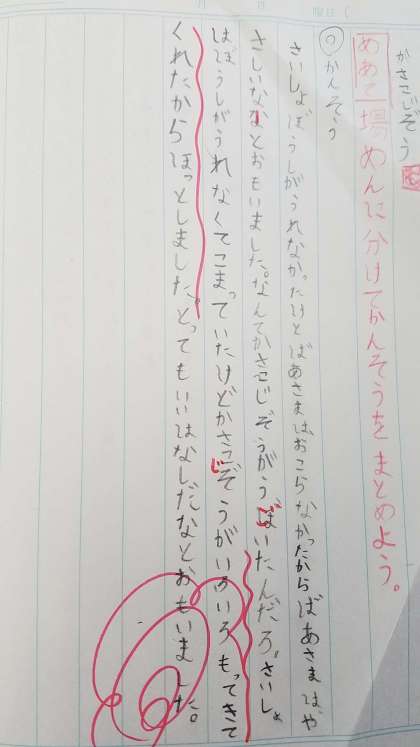 かさこじぞう
めあて 場めんに分けてかんそうをまとめよう。
かんそう
さいしょぼうしがうれなかったけとばあさまは、おこらなかったからばあさまはや
さしいなとおもいました。なんてかさこじぞうがうごいたんだろ。さいしょ
はぼうしがうれなくてこまっていたけどかさこじぞうがいろいろもってきて
くれたからほっとしました。とってもいいはなしだなとおもいました。